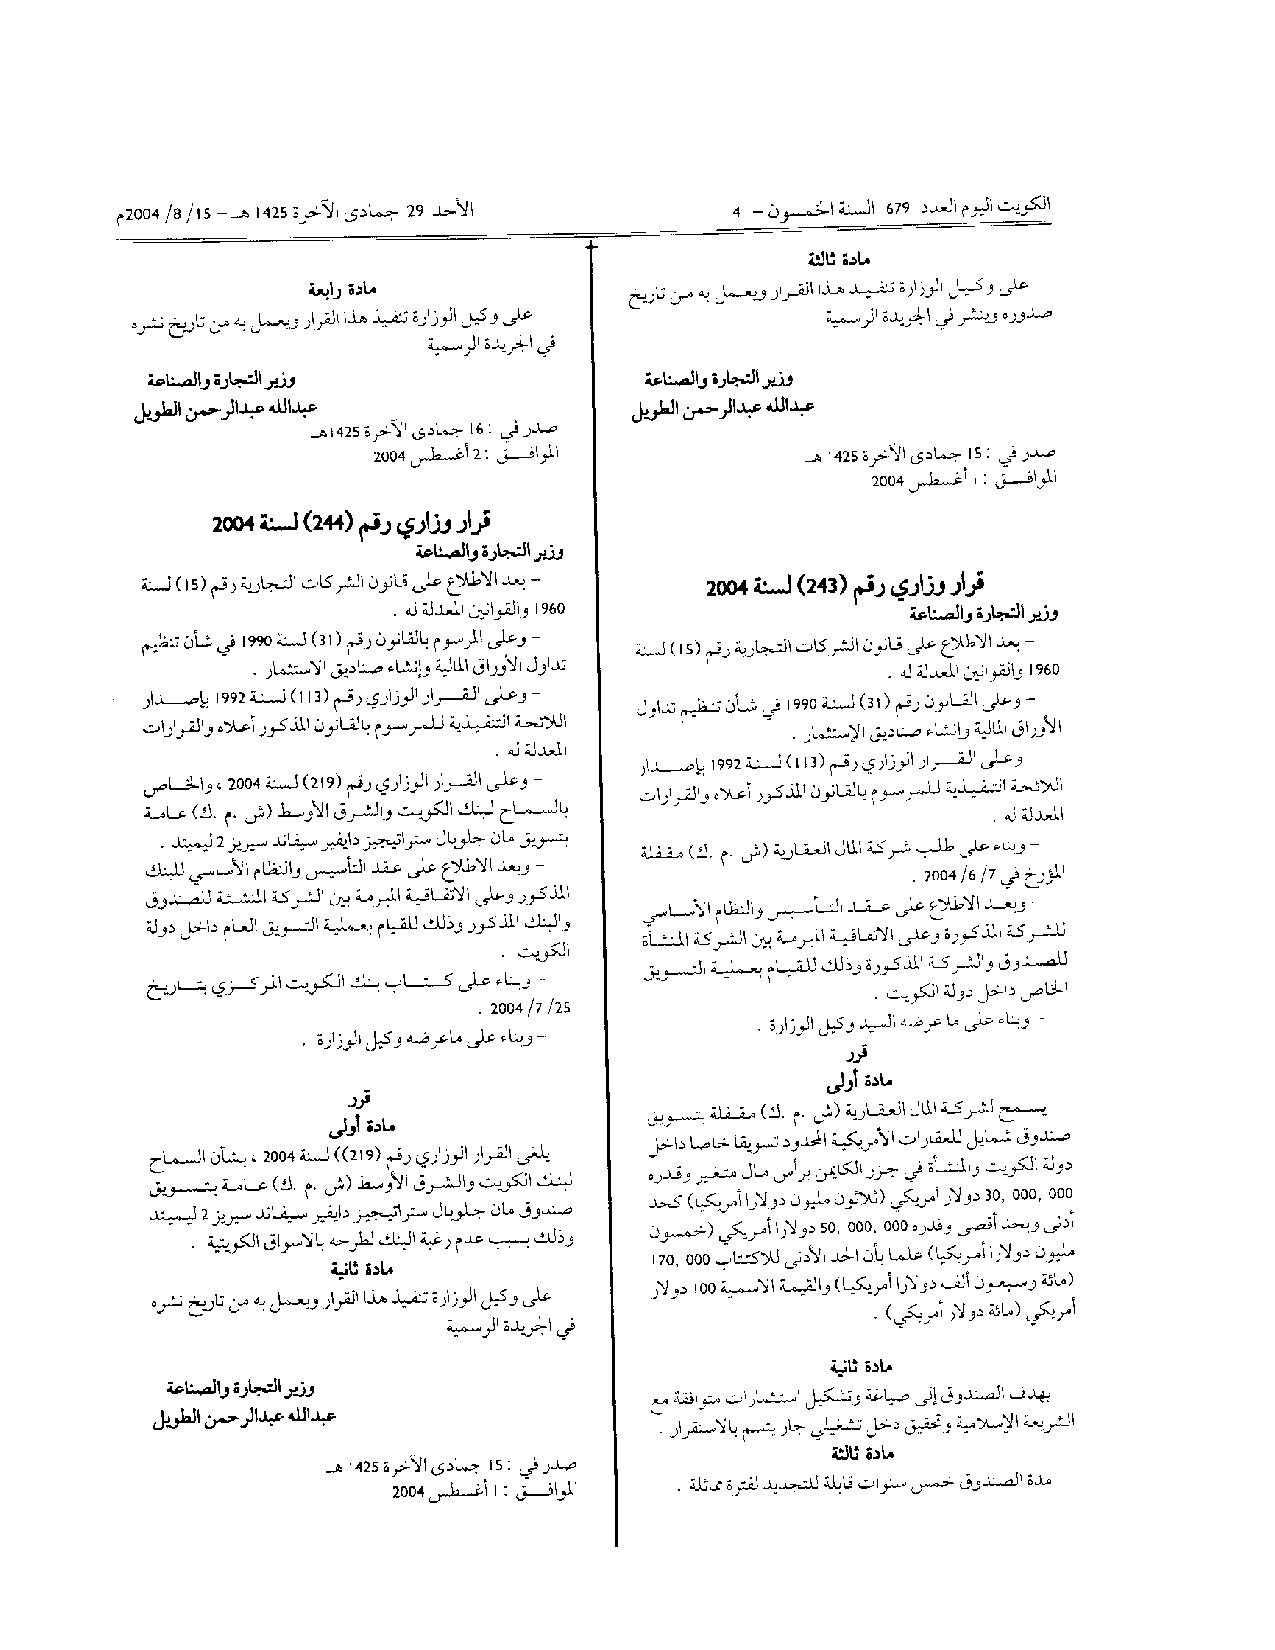 الكويت اليوم العدد 679 السنة الخمسون - 4
الأحد 29 جمادى الآخرة 1425 هـ - 15/ 8/ 2004م
مادة ثالثة
على وكيل الوزارة تنفيذ هذا القرار ويعمل به من تاريخ
صدوره وينشر في الجريدة الرسمية
وزير التجارة والصناعة
عبدالله عبدالرحمن الطويل
صدر في : 15 جمادى الآخرة 1425 هـ
الموافـــق : 1 أغسطس 2004
قرار وزاري رقم (243) لسنة 2004
وزير التجارة والصناعة
- بعد الاطلاع على قانون الشركات التجارية رقم (15) لسنة
1960 والقوانين المعدلة له .
- وعلى القانون رقم (31) لسنة 1990 في شأن تنظيم تداول
الأوراق المالية وإنشاء صناديق الاستثمار .
وعلى القرار الوزاري رقم (113) لسنة 1992 بإصدار
اللائحة التنفيذية للمرسوم بالقانون المذكور أعلاه والقرارات
المعدلة له .
- وبناء على طلب شركة المال العقارية (ش. م. ك) مقفلة
المؤرخ في 7/ 6/ 2004 .
- وبعد الاطلاع على عقد التأسيس والنظام الأساسي
للشركة المذكورة وعلى الاتفاقية المبرمة بين الشركة المنشأة
للصندوق والشركة المذكورة وذلك للقيام بعملية التسويق
الخاص داخل دولة الكويت .
- وبناء على ما عرضه السيد وكيل الوزارة .
قرر
مادة أولى
يسمح لشركة المال العقارية (ش. م. ك) مقفلة بتسويق
صندوق شمايل للعقارات الأمريكية المحدود تسويقا خاصا داخل
دولة الكويت والمنشأة في جزر الكايمن برأس مال متغير وقدره
30, 000, 000 دولار أمريكي (ثلاثون مليون دولارا أمريكيا) كحد
أدنى وبحد أقصى وقدره 50, 000, 000 دولارا أمريكي (خمسون
مليون دولارا أمريكيا) علما بأن الحد الأدنى للاكتتاب 170, 000
(مائة وسبعون ألف دولارا أمريكيا) والقيمة الاسمية 100 دولار
أمريكي (مائة دولار أمريكي) .
مادة ثانية
يهدف الصندوق إلى صياغة وتشكيل استثمارات متوافقة مع
الشريعة الإسلامية وتحقيق دخل تشغيلي جار يتسم بالاستقرار .
مادة ثالثة
مدة الصندوق خمس سنوات قابلة للتجديد لفترة مماثلة .
مادة رابعة
على وكيل الوزارة تنفيذ هذا القرار ويعمل به من تاريخ نشره
في الجريدة الرسمية
وزير التجارة والصناعة
عبدالله عبدالرحمن الطويل
صدر في : 16 جمادى الآخرة 1425هـ
الموافـــق : 2 أغسطس 2004
قرار وزاري رقم (244) لسنة 2004
وزير التجارة والصناعة
- بعد الاطلاع على قانون الشركات التجارية رقم (15) لسنة
1960 والقوانين المعدلة له .
- وعلى المرسوم بالقانون رقم (31) لسنة 1990 في شأن تنظيم
تداول الأوراق المالية وإنشاء صناديق الاستثمار .
- وعلى القرار الوزاري رقم (113) لسنة 1992 بإصدار
اللائحة التنفيذية للمرسوم بالقانون المذكور أعلاه والقرارات
المعدلة له .
- وعلى القرار الوزاري رقم (219) لسنة 2004 ، والخاص
بالسماح لبنك الكويت والشرق الأوسط (ش. م. ك) عامة
بتسويق مان جلوبال ستراتيجيز دايفير سيفايد سيريز 2 ليميتد .
- وبعد الاطلاع على عقد التأسيس والنظام الأساسي للبنك
المذكور وعلى الاتفاقية المبرمة بين الشركة المنشئة للصندوق
والبنك المذكور وذلك للقيام بعملية التسويق العام داخل دولة
الكويت .
- وبناء على كتاب بنك الكويت المركزي بتاريخ
25/ 7/ 2004 .
- وبناء على ماعرضه وكيل الوزارة .
قرر
مادة أولى
يلغى القرار الوزاري رقم (219)) لسنة 2004 ، بشأن السماح
لبنك الكويت والشرق الأوسط (ش. م. ك) عامة بتسويق
صندوق مان جلوبال ستراتيجيز دايفير سيفايد سيريز 2 ليميتد
وذلك بسبب عدم رغبة البنك لطرحه بالاسواق الكويتية .
مادة ثانية
على وكيل الوزارة تنفيذ هذا القرار ويعمل به من تاريخ نشره
في الجريدة الرسمية
وزير التجارة والصناعة
عبدالله عبدالرحمن الطويل
صدر في : 15 جمادى الآخرة 1425 هـ
الموافـــق : 1 أغسطس 2004